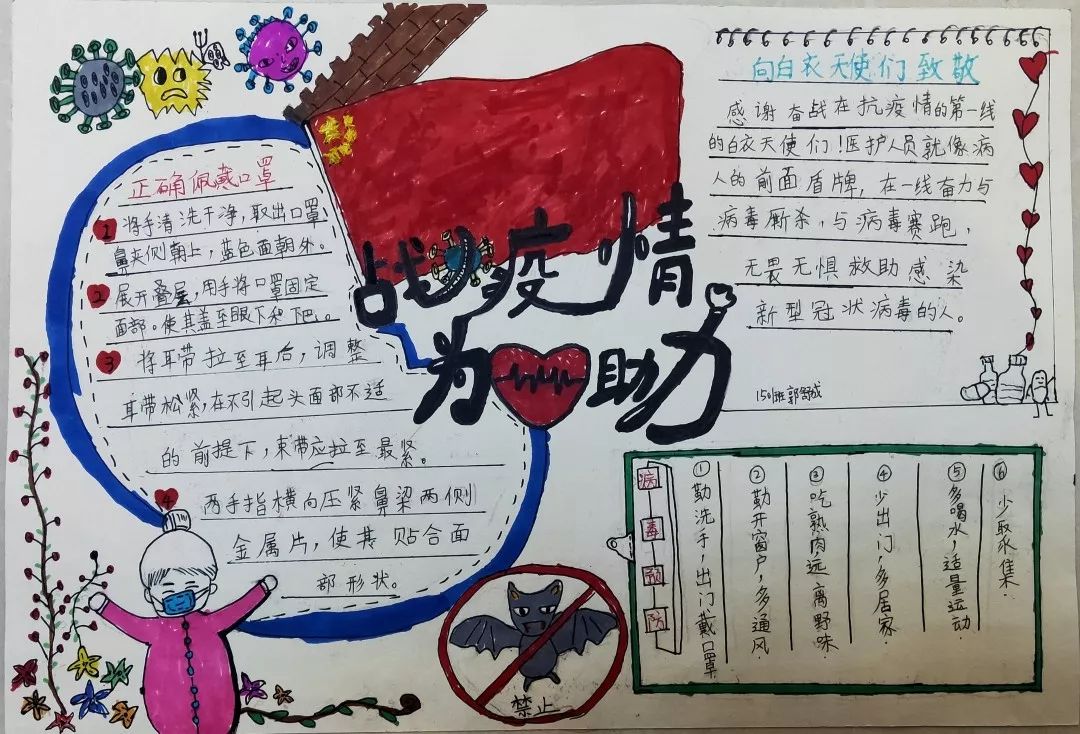 战疫情
为助力
正确佩戴口罩
1 将手清洗干净,取出口罩
鼻夹侧朝上,蓝色面朝外。
2 展开叠层,用手将口罩固定
面部。使其盖至眼下和下巴。
3 将耳带拉至耳后,调整
耳带松紧,在不引起头面部不适
的前提下,束带应拉至最紧。
4 两手指横向压紧鼻梁两侧
金属片,使其贴合面
部形状。
向白衣天使们致敬
感谢奋战在抗疫情的第一线
的白衣天使们!医护人员就像病
人的前面盾牌,在一线奋力与
病毒厮杀,与病毒赛跑,
无畏无惧救助感染
新型冠状病毒的人。
1501班郭舒成
病毒预防
①勤洗手,出门戴口罩
②勤开窗户,多通风.
③吃熟肉远离野味.
④少出门,多居家.
⑤多喝水,适量运动
⑥少聚集.
禁止